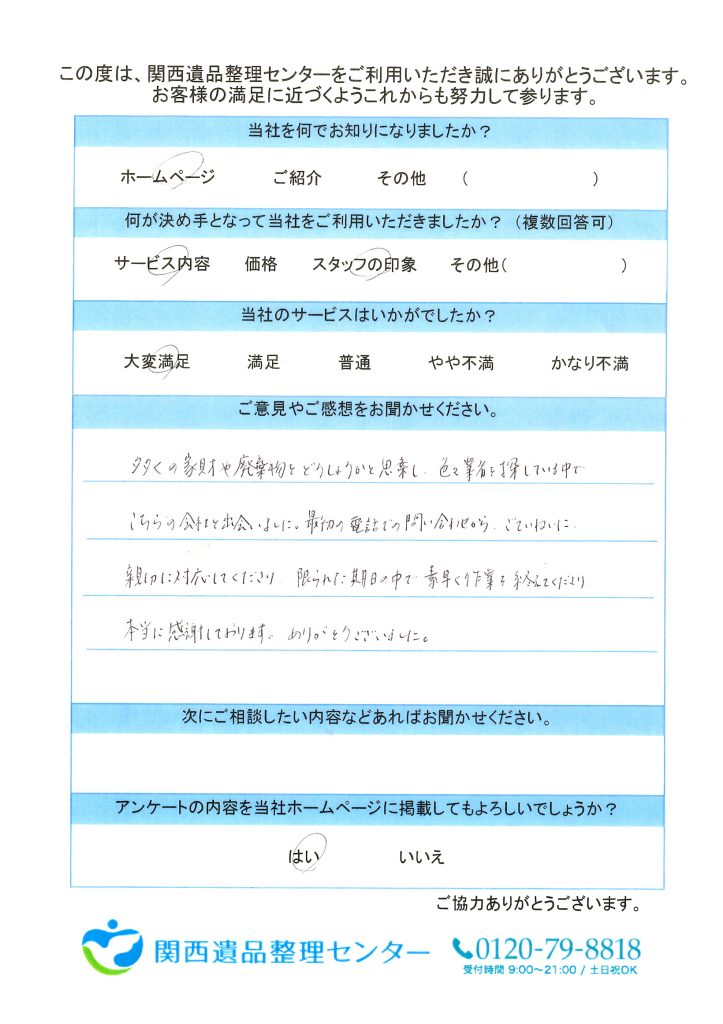 この度は、関西遺品整理センターをご利用いただき誠にありがとうございます。
お客様の満足に近づくようこれからも努力して参ります。
当社を何でお知りになりましたか？
ホームページ ご紹介 その他 （ ）
何が決め手となって当社をご利用いただきましたか？ （複数回答可）
サービス内容 価格 スタッフの印象 その他( )
当社のサービスはいかがでしたか？
大変満足 満足 普通 やや不満 かなり不満
ご意見やご感想をお聞かせください。
多くの家財や廃棄物をどうしょうかと思案し、色々業者を探している中で
こちらの会社と出会いました。最初の電話での問い合わせから、ていねいに
親切に対応してくださり 限られた期日の中で 素早く作業を終えてくださり
本当に感謝しております。ありがとうございました。
次にご相談したい内容などあればお聞かせください。
アンケートの内容を当社ホームページに掲載してもよろしいでしょうか？
はい いいえ
ご協力ありがとうございます。
関西遺品整理センター
0120-79-8818
受付時間 9:00〜21:00 / 土日祝OK